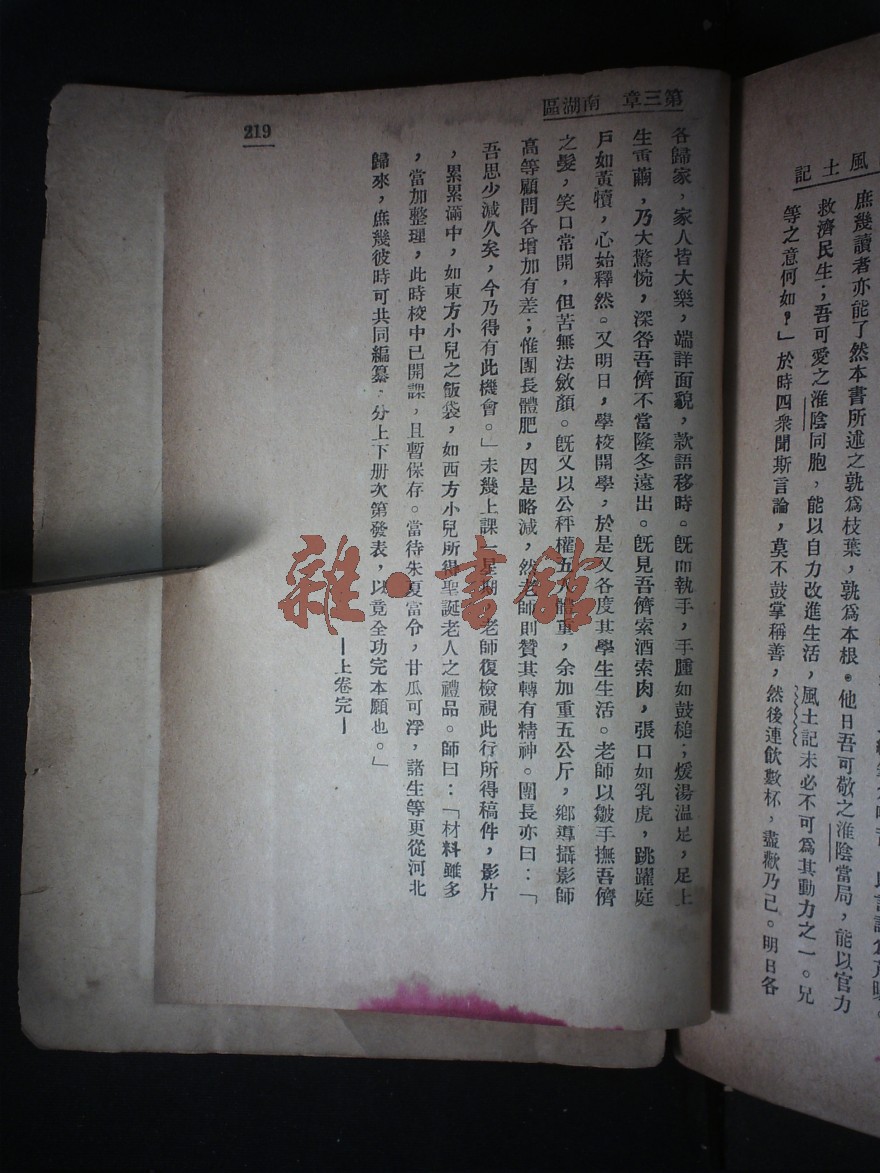 風土記
庶幾讀者亦能了然本書所述之孰爲枝葉，孰爲本根。他日吾可敬之淮陰當局，能以官力
救濟民生；吾可愛之淮陰同胞，能以自力改進生活，風土記未必不可爲其動力之一。兄
等之意何如？」於時四衆聞斯言論，莫不鼓掌稱善，然後連飲數杯，盡歡乃已。明日各
第三章　南湖區
各歸家，家人皆大樂，端詳面貌，款語移時。旣而執手，手腫如鼓槌；煖湯温足，足上
生重繭，乃大驚惋，深咎吾儕不當隆冬遠出。旣見吾儕索酒索肉，張口如乳虎，跳躍庭
戶如黃犢，心始釋然。又明日，學校開學，於是又各度其學生生活。老師以皺手撫吾儕
之髮，笑口常開，但苦無法斂顏。旣又以公秤權五人體重，余加重五公斤，鄉導攝影師
高等顧問各增加有差；惟團長體肥，因是略減，然老師則贊其轉有精神。團長亦曰：「
吾思少減久矣，今乃得有此機會。」未幾上課一星期，老師復檢視此行所得稿件，影片
，累累滿中，如東方小兒之飯袋，如西方小兒所得聖誕老人之禮品。師曰：「材料雖多
，當加整理，此時校中已開課，且暫保存。當待朱夏當令，甘瓜可浮，諸生等更從河北
歸來，庶幾彼時可共同編纂，分上下册次第發表，以竟全功完本願也。」
—上卷完—
219
雜·書館